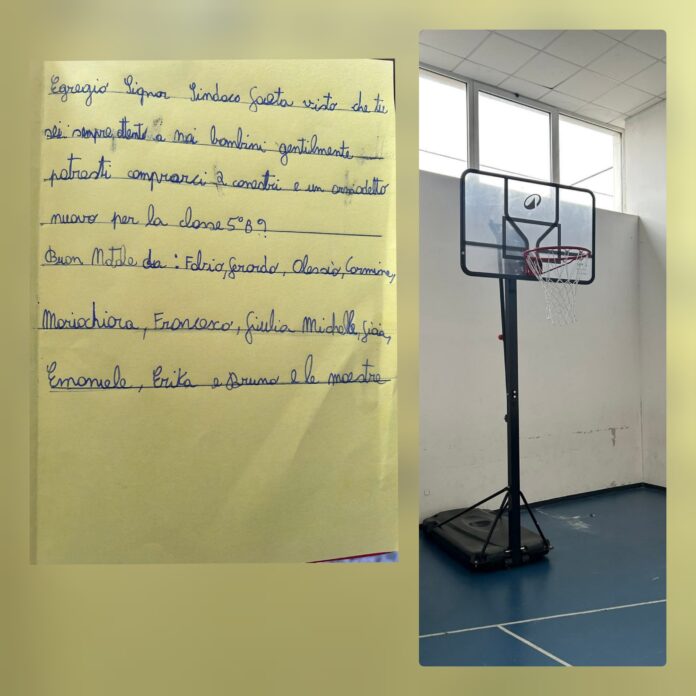 Egregio Signor Sindaco Gaeta visto che tu
sei sempre attento a noi bambini gentilmente
potresti comprarci 2 canestri e un armadietto
nuovo per la classe 5°B?
Buon Natale da: Fabio, Gerardo, Alessio, Carmine,
Mariachiara, Francesco, Giulia Michelle, Gioia,
Emanuele, Erika e Bruno e le maestre